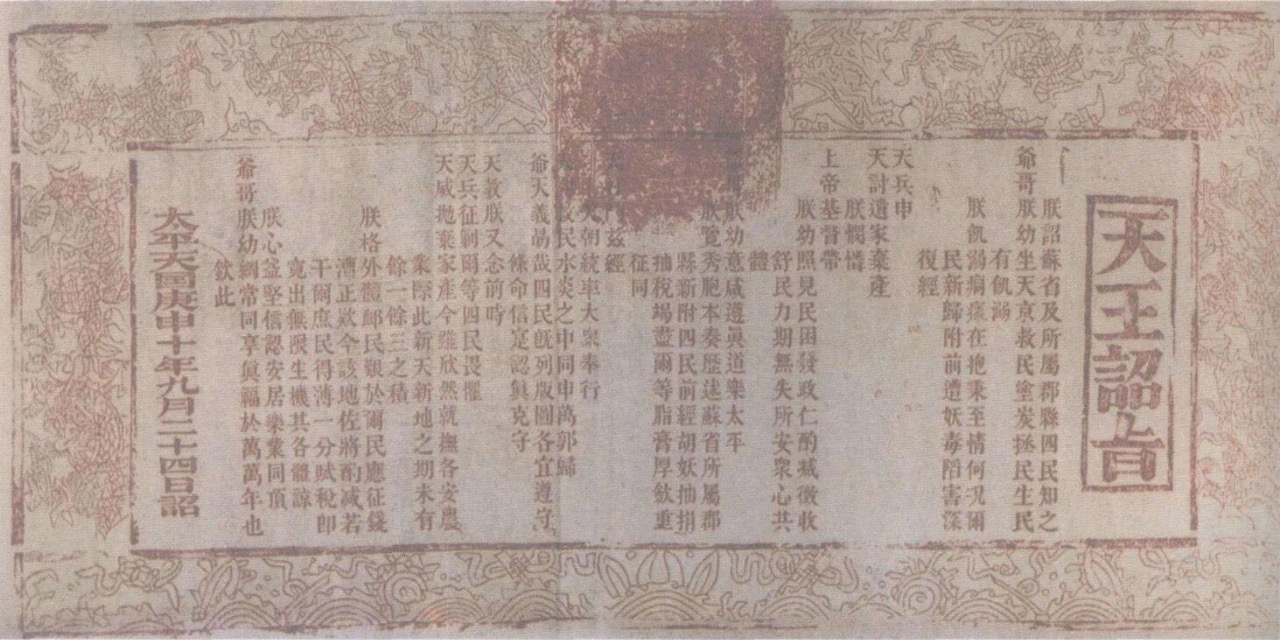 天王詔旨
朕詔蘇省及所屬郡縣四民知之
爺哥朕幼坐天京救民塗炭拯民生民
有飢溺
朕飢溺痌瘝在抱秉至情何況爾
民新歸附前遭妖毒陷害深
復經
天兵申
天討遺家棄產
朕憫憐
上帝基督帶
朕幼照見民困發政仁酌減徵收
舒民力期無失所安衆心共
體
朕幼意咸遵眞道樂太平
朕覽秀胞本奏歷述蘇省所屬郡
縣新附四民前經胡妖抽捐
抽稅竭盡爾等脂膏厚斂重
征同
茲經
天朝統率大衆奉行
民水炎之中同申萬郭歸
爺天義昜哉四民旣列版圖各宜遵守
條命信寔認眞克守
天敎朕又念前時
天兵征剿爾等四民畏懼
天威拋棄家產今雖欣然就撫各安農
業際此新天新地之期未有
餘一餘三之積
朕格外體卹民艱於爾民應征錢
漕正欵今該地佐將酌减若
干爾庶民得薄一分賦稅卽
寬出無限生機其各體諒
朕心益堅信認安居樂業同頂
爺哥朕幼綱常同享眞福於萬萬年也
欽此
太平天囯庚申十年九月二十四日詔